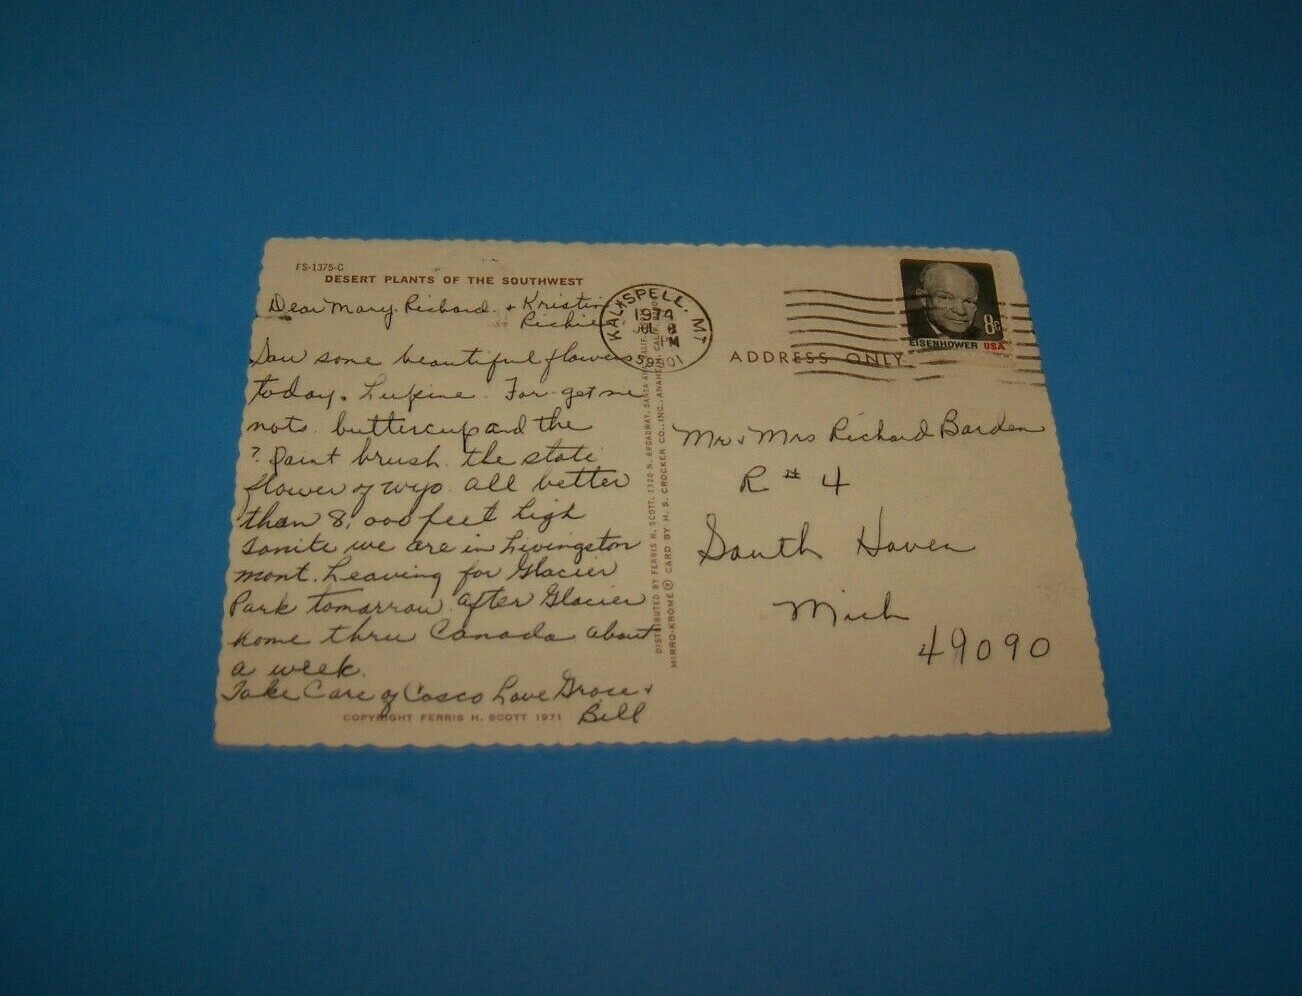 FS-1375-C
DESERT PLANTS OF THE SOUTHWEST
Dear Mary. Richard. + Kristin
Richie
Saw some beautiful flowers
today. Lupine. For-get me
nots. buttercup and the
? paint brush. the state
flower of wyo. all better
than 8,000 feet high
Sonite we are in Livingston
mont. Leaving for Glacier
Park tomorrow. after Glacier
home thru Canada about
a week.
Take Care of Casco Love Grace +
Bill
COPYRIGHT FERRIS H. SCOTT 1971
DISTRIBUTED BY FERRIS H. SCOTT, 1320 N. BROADWAY, SANTA ANA, CALIF.
MIRRO-KROME ® CARD BY H. S. CROCKER CO., INC., ANAHEIM, CALIF.
KALISPELL, MT
1974
JUL 8
PM
59901
EISENHOWER USA
8c
ADDRESS ONLY
Mr + Mrs Richard Barden
R # 4
South Haven
Mich
49090